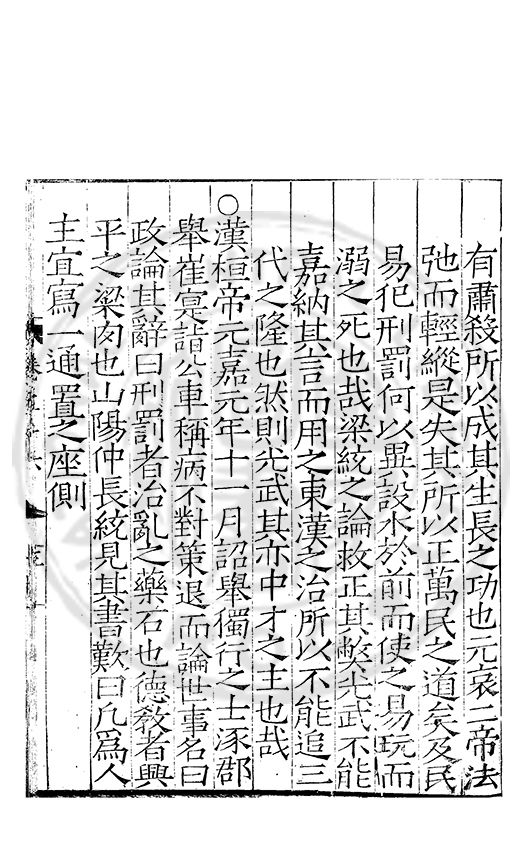 有肅殺所以成其生長之功也元哀二帝法
弛而輕縱是失其所以正萬民之道矣及民
易犯刑罰何以異設水於前而使之易玩而
溺之死也哉梁統之論救正其弊光武不能
嘉納其言而用之東漢之治所以不能追三
代之隆也然則光武其亦中才之主也哉
○漢桓帝元嘉元年十一月詔舉獨行之士涿郡
舉崔寔詣公車稱病不對策退而論世事名曰
政論其辭曰刑罰者治亂之藥石也德教者興
平之梁肉也山陽仲長統見其書歎曰凡為人
主宜寫一通置之座側